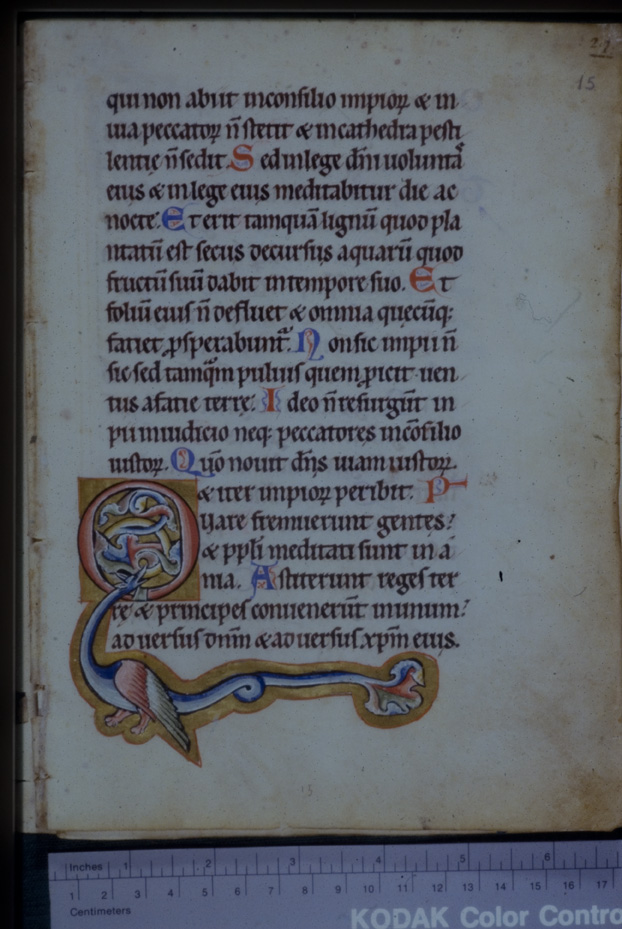 27
15
qui non abiit inconsilio impioꝝ & in
uia peccatoꝝ n̄ stetit & incathedra pesti
lentie n̄ sedit. Sed inlege dn̄i uoluntā
eius & inlege eius meditabitur die ac
nocte. Et erit tamquā lignū quod pla
ntatū est secus decursus aquarū quod
fructū suū dabit intempore suo. Et
foliū eius n̄ defluet & omnia quecūq;
faciet ꝓsperabunt̃. Non sic impii n̄
sic sed tamqm̃ puluis quem ꝓicit uen
tus afacie terre. Ideo n̄ resurgūt in
pii iniudicio neq; peccatores incōsilio
iustoꝝ. Qn̄o nouit dn̄s uiam iustoꝝ.
& iter impioꝝ peribit. P
Quare fremuerunt gentes:
& ppl̃i meditati sunt in a
nia. Astiterunt reges ter
re & principes conuenerūt inunum:
aduersus dnm̃ & aduersus xpm̃ eius.
15
Inches 1 2 3 4 5 6
1 2 3 4 5 6 7 8 9 10 11 12 13 14 15 16 17
Centimeters
KODAK Color Contro